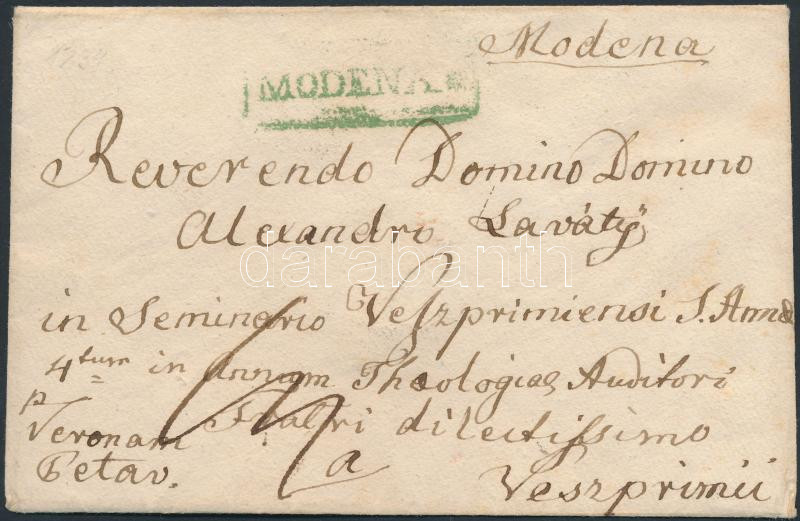 Modena
MODENA
Reverendo Domino Domino
Alexandro Laváty
in Seminario Veszprimiensi S. Annae
4tum in annum Theologiae Auditori
Fratri dilectissimo
p
Veronam
Petav.
a
Veszprimii
darabanth